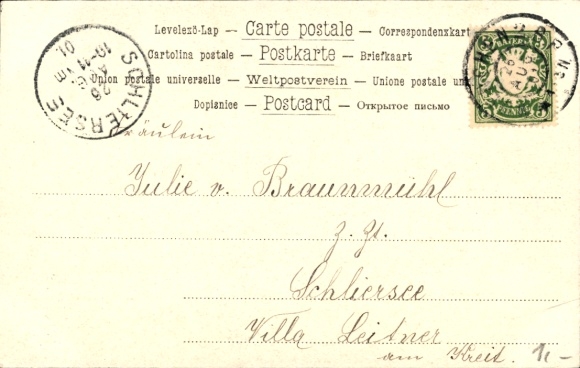 Levelező-Lap — Carte postale — Correspondenzkart
Cartolina postale — Postkarte — Briefkaart
Union postale universelle — Weltpostverein — Union postale un
Dopisnice — Postcard — Открытое письмо
SCHLIERSEE
26
10-11
01
BAYERN
26
AUG
Fräulein
Julie v. Braunmühl
z. Zt.
Schliersee
Villa Leitner
am Kreit.
1,-